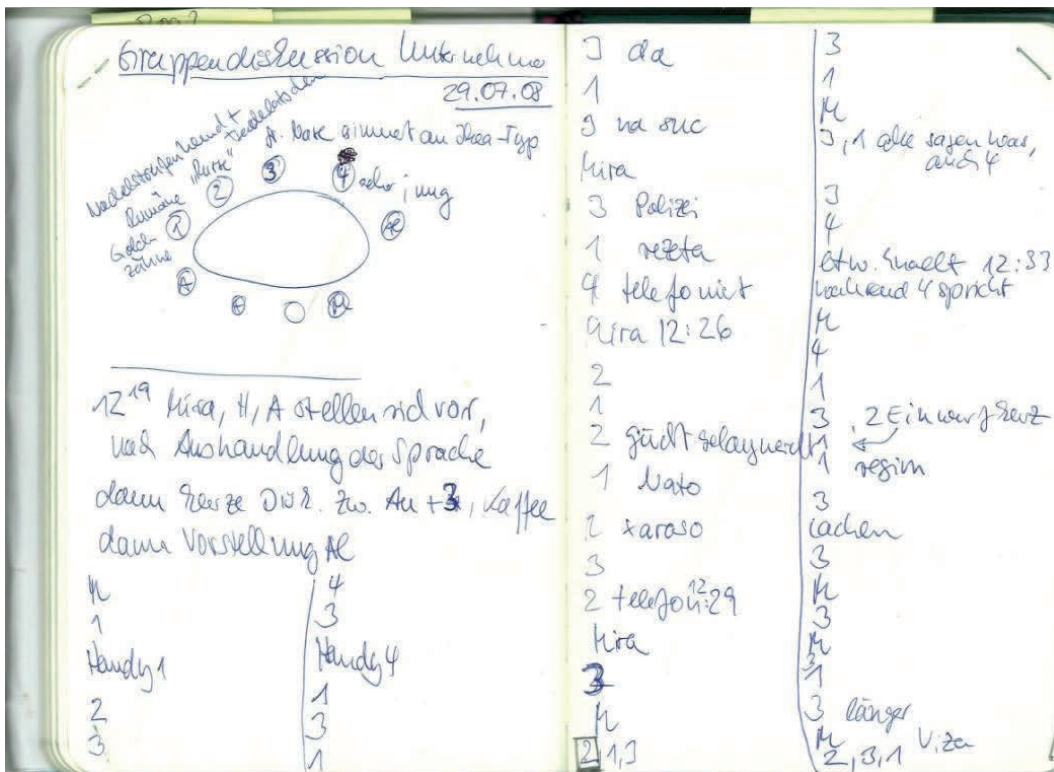 Gruppendiskussion Unternehmer
29.07.08
A. Nase erinnert an Ikea-Typ
"Kurse"
Rumäne
Gold-
zähne
1
2
3
4
jung
A
M
12 19 Mira, H, A stellen sich vor,
nach Aushandlung der Sprache
dann kurze Disk. zw. An + 3, Kaffee
dann Vorstellung Al
M
1
Handy 1
2
3
4
3
Handy 4
1
3
1
3 da
1
3 na suc
Mira
3 Polizei
1
4 telefoniert
Mira 12:26
2
1
2 guckt gelangweilt
1 Nato
2 xaraso
3
2 telefon 12:29
Mira
3
M
2 1,3
3
1
M
3, 1 alle sagen was,
auch 4
3
4
etw. knallt 12:33
während 4 spricht
M
4
1
3, 2 Einwurf kurz
1
1 regim
3
lachen
3
M
3
M
3
1
3 länger
M
2, 3, 1 Viza